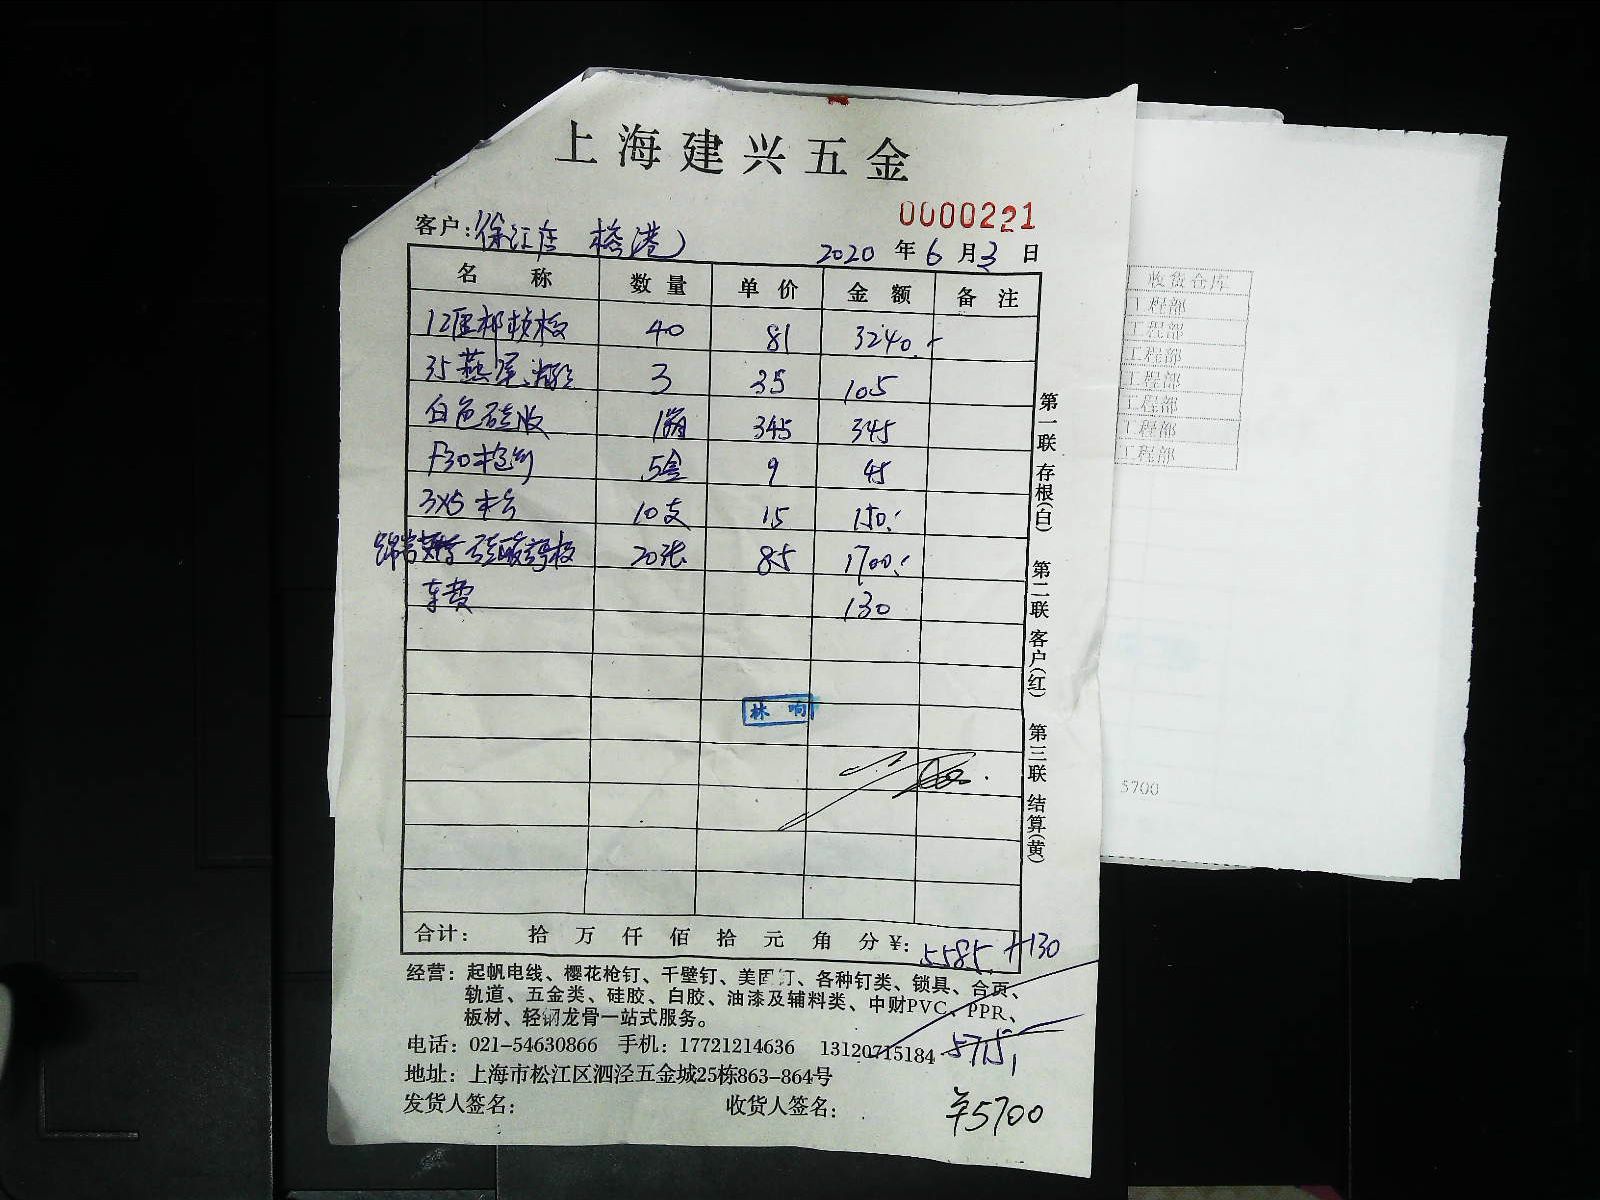 上海建兴五金
0000221
客户: 徐江店 2020年6月3日
名称 数量 单价 金额 备注
12厘 40 81 3240.-
35燕尾 3 35 105
白色硅胶 1箱 345 345
F30枪钉 5盒 9 45
3X5木方 10支 15 150.-
硅酸钙板 20张 85 1700.-
车费 130
林响
合计: 拾万仟佰拾元角分¥: 5585 +130
经营: 起帆电线、樱花枪钉、干壁钉、美固钉、各种钉类、锁具、合页、
轨道、五金类、硅胶、白胶、油漆及辅料类、中财PVC、PPR、
板材、轻钢龙骨一站式服务。
电话: 021-54630866 手机: 17721214636 13120715184
5715
地址: 上海市松江区泗泾五金城25栋863-864号
发货人签名: 收货人签名: ¥5700
第一联 存根(白) 第二联 客户(红) 第三联 结算(黄)
收货仓库
工程部
工程部
工程部
工程部
工程部
工程部
工程部
5700